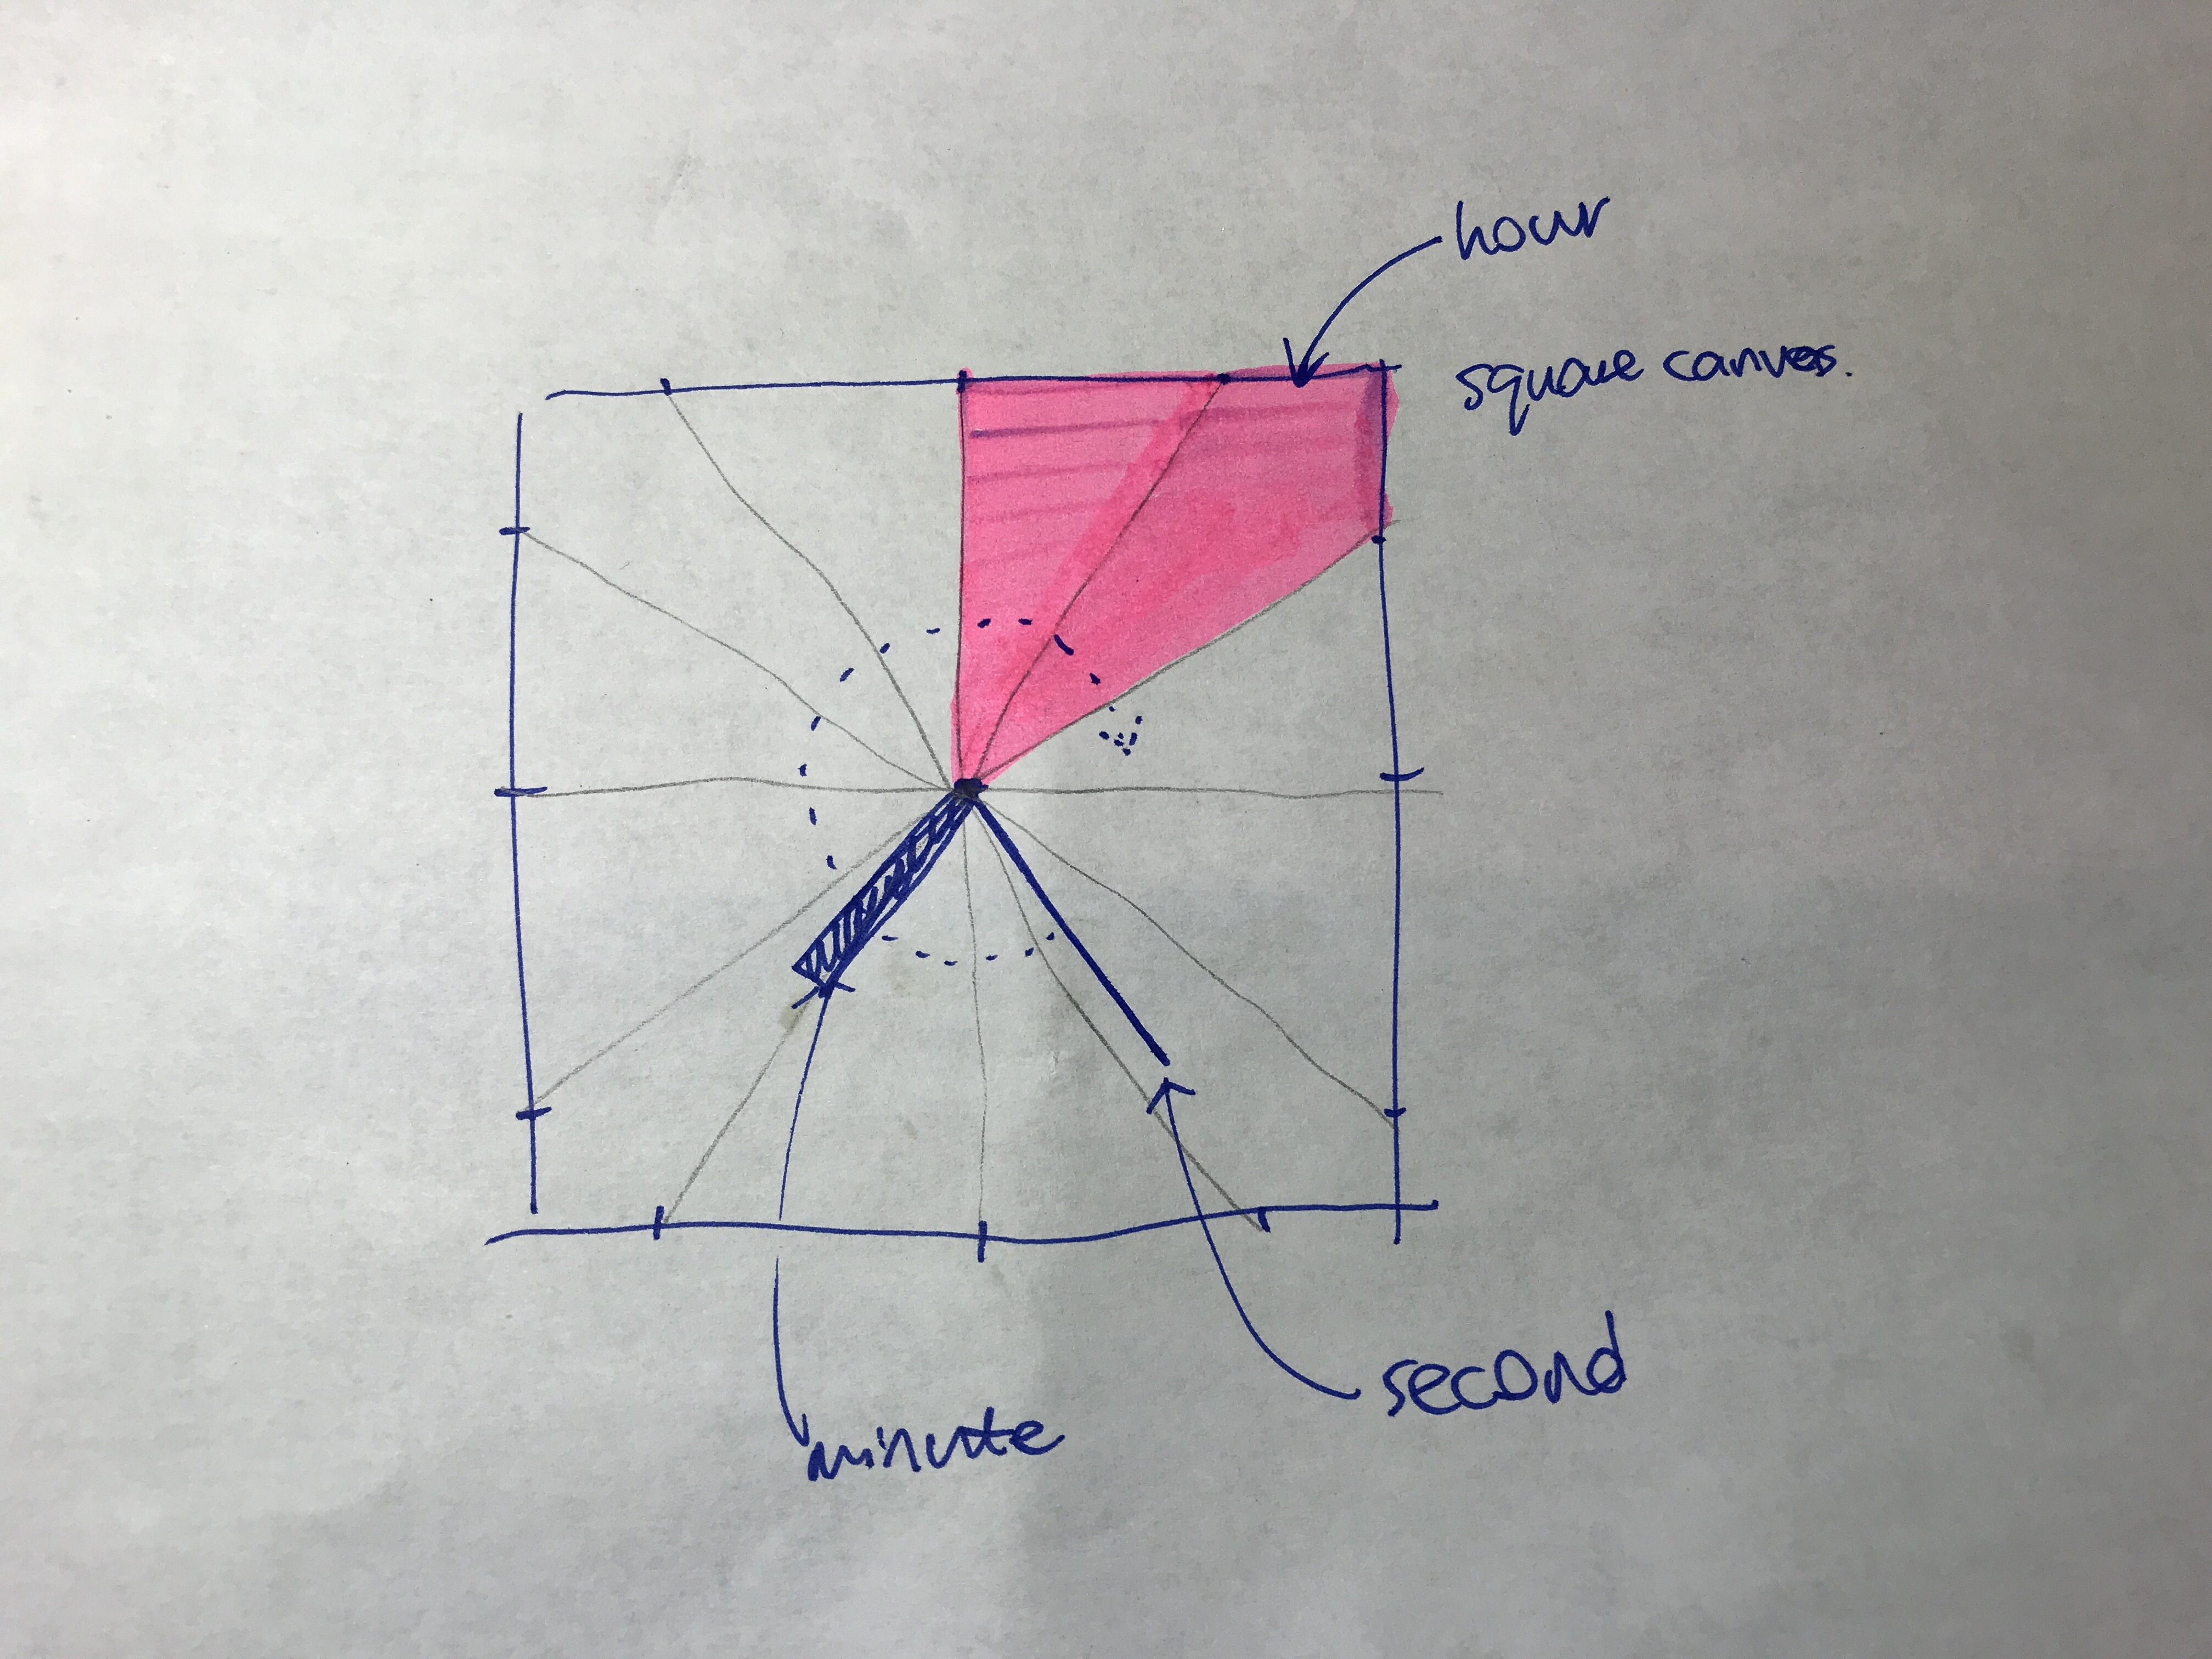 hour
square canvas.
second
minute